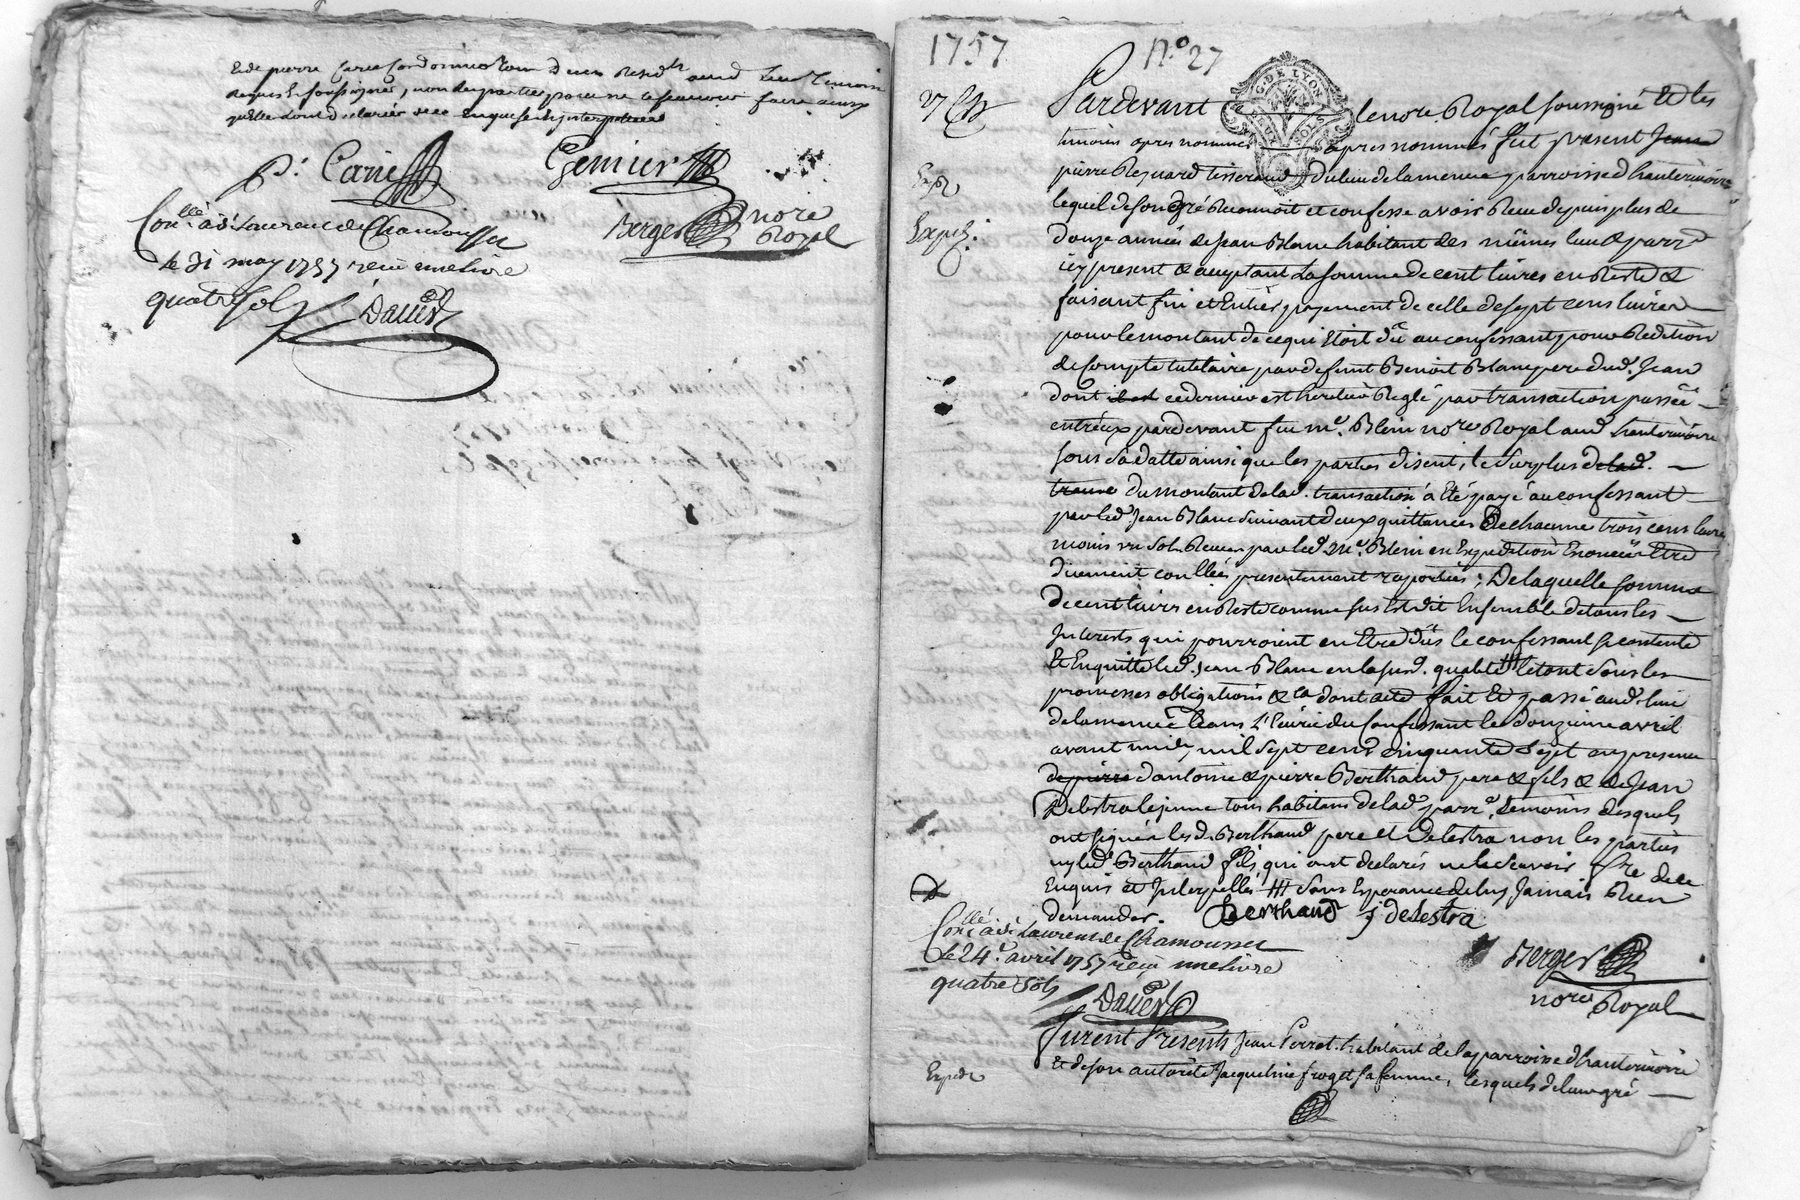 et de pierre Carie Cordonnier tous deux resid. aud. lieu temoins
requis & soussignés, non les parties pour ne le scavoir faire ainsy
qu'elles ont declarés de ce enquises & interpellées
P. Carie
Genier
Conllé à St Laurent de Chamousset
le 31 may 1757 reçu une livre
quatre sols
Daued
Berger nore
Royal
1757
No. 27
G. DE LYON
DEUX SOLS
27
Expé
Pardevant le nore. Royal soussigné Et les
temoins apres nommés apres nommés fut present Jean
pierre Requard tisserand du lieu de lamenue parroisse d'hauterivoire
lequel de son gré Reconnoit et confesse avoir Reçu depuis plus de
douze années de Jean Blanc habitant des mêmes lieu & parr.
icy present & acceptant la somme de cent livres en Reste &
faisant fin et Entier payement de celle de sept cens livres
pour le montant de ce qui étoit dû au confessant pour Reddition
de compte tutelaire par defunt Benoit Blanc pere dud. Jean
dont il est ce dernier est heritier Reglé par transaction passée
entréux pardevant feu me. Blein nore Royal aud. hauterivoire
sous sa datte ainsi que les parties disent, le surplus de lad.
du montant de lad. transaction a été payé au confessant
par led. Jean Blanc suivant deux quittances de chacune trois cens livres
moins un sol Reçues par led. Me. Blein en Expedition Enoncées Etre
duement conllées presentement raportées; De laquelle somme
de cent livres en Reste comme sus Est dit Ensemble de tous les
Interests qui pourroient en Etre dûs le confessant se contente
& En quitte led. Jean Blanc en la susd. qualité le tout sous les
promesses obligations &ca dont acte fait Et passé aud. lieu
de lamenue dans l'Ecurie du Confessant le douzieme avril
avant midy mil sept cens cinquante sept en presence
de pierre d'antoine & pierre Berthaud pere & fils & de Jean
Delestra le jeune tous habitans de lad. parr. temoins desquels
ont signé lesd. Berthaud pere et Delestra non les parties
ny led. Berthaud fils, qui ont declarés ne le scavoir fre de ce
Enquis et Interpellés sans Esperance de luy Jamais Rien
demander.
Berthaud J delestra
Conllé à St Laurent de Chamousset
le 24. avril 1757 reçu une livre
quatre sols
Daued
Berger
nore Royal
Furent Presents Jean Perret habitant de la parroisse d'hauterivoire
Et de son autorité Jacqueline froget sa femme, lesquels de leur gré
Expedé